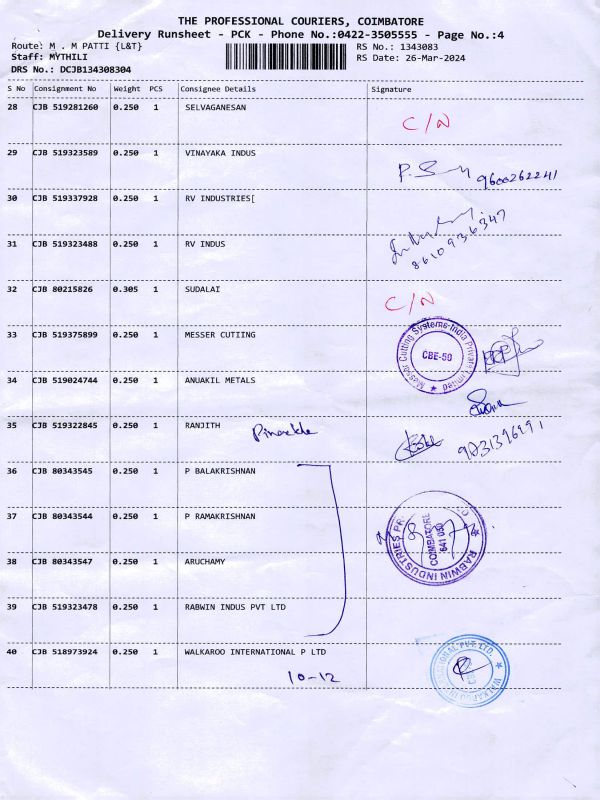 THE PROFESSIONAL COURIERS, COIMBATORE
Delivery Runsheet - PCK - Phone No.:0422-3505555 - Page No.:4
Route: M . M PATTI {L&T} RS No.: 1343083
Staff: MYTHILI RS Date: 26-Mar-2024
DRS No.: DCJB134308304
S No Consignment No Weight PCS Consignee Details Signature
28 CJB 519281260 0.250 1 SELVAGANESAN
C/N
29 CJB 519323589 0.250 1 VINAYAKA INDUS
9600262241
30 CJB 519337928 0.250 1 RV INDUSTRIES[
8610936347
31 CJB 519323488 0.250 1 RV INDUS
32 CJB 80215826 0.305 1 SUDALAI
C/N
33 CJB 519375899 0.250 1 MESSER CUTIING
Messer Cutting Systems India Private Limited
CBE-50
34 CJB 519024744 0.250 1 ANUAKIL METALS
35 CJB 519322845 0.250 1 RANJITH
Pinackle
36 CJB 80343545 0.250 1 P BALAKRISHNAN
37 CJB 80343544 0.250 1 P RAMAKRISHNAN
RABWIN INDUSTRIES
COIMBATORE
38 CJB 80343547 0.250 1 ARUCHAMY
39 CJB 519323478 0.250 1 RABWIN INDUS PVT LTD
40 CJB 518973924 0.250 1 WALKAROO INTERNATIONAL P LTD
10-12